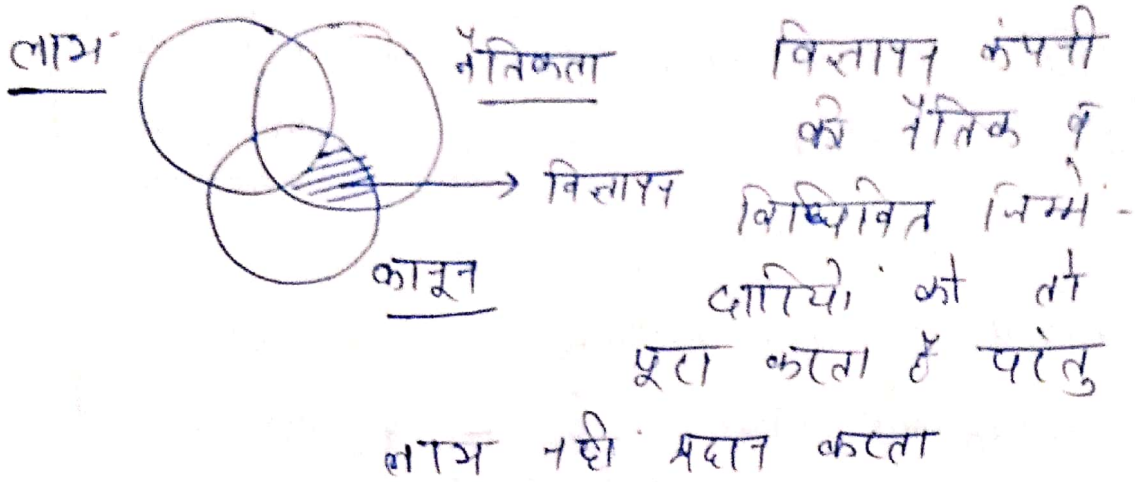 लाभ
नैतिकता
विज्ञापन
कानून
विज्ञापन कंपनी
की नैतिक व
विधिवित जिम्मे-
दारियों को तो
पूरा करता है परंतु
लाभ नहीं प्रदान करता